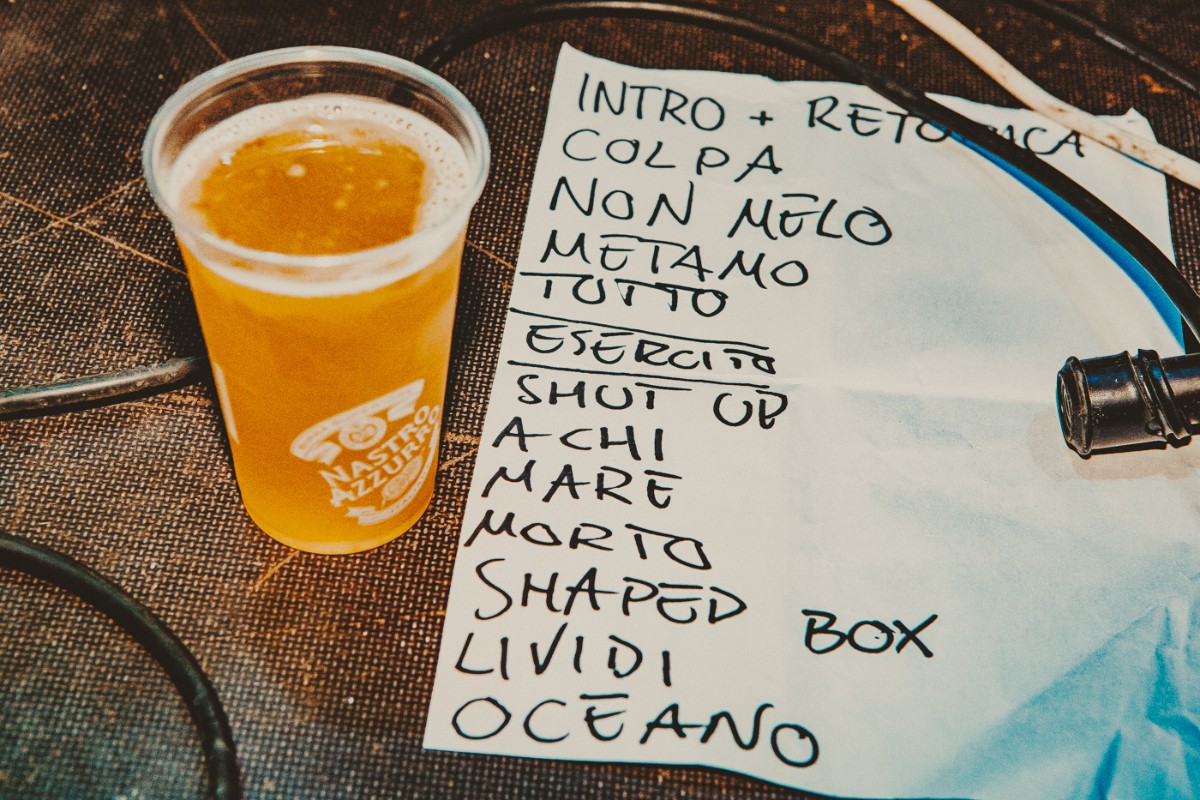 NASTRO
AZZURRO
INTRO + RETO
COLPA
NON MELO
METAMO
TUTTO
ESERCITO
SHUT UP
A CHI
MARE
MORTO
SHAPED BOX
LIVIDI
OCEANO